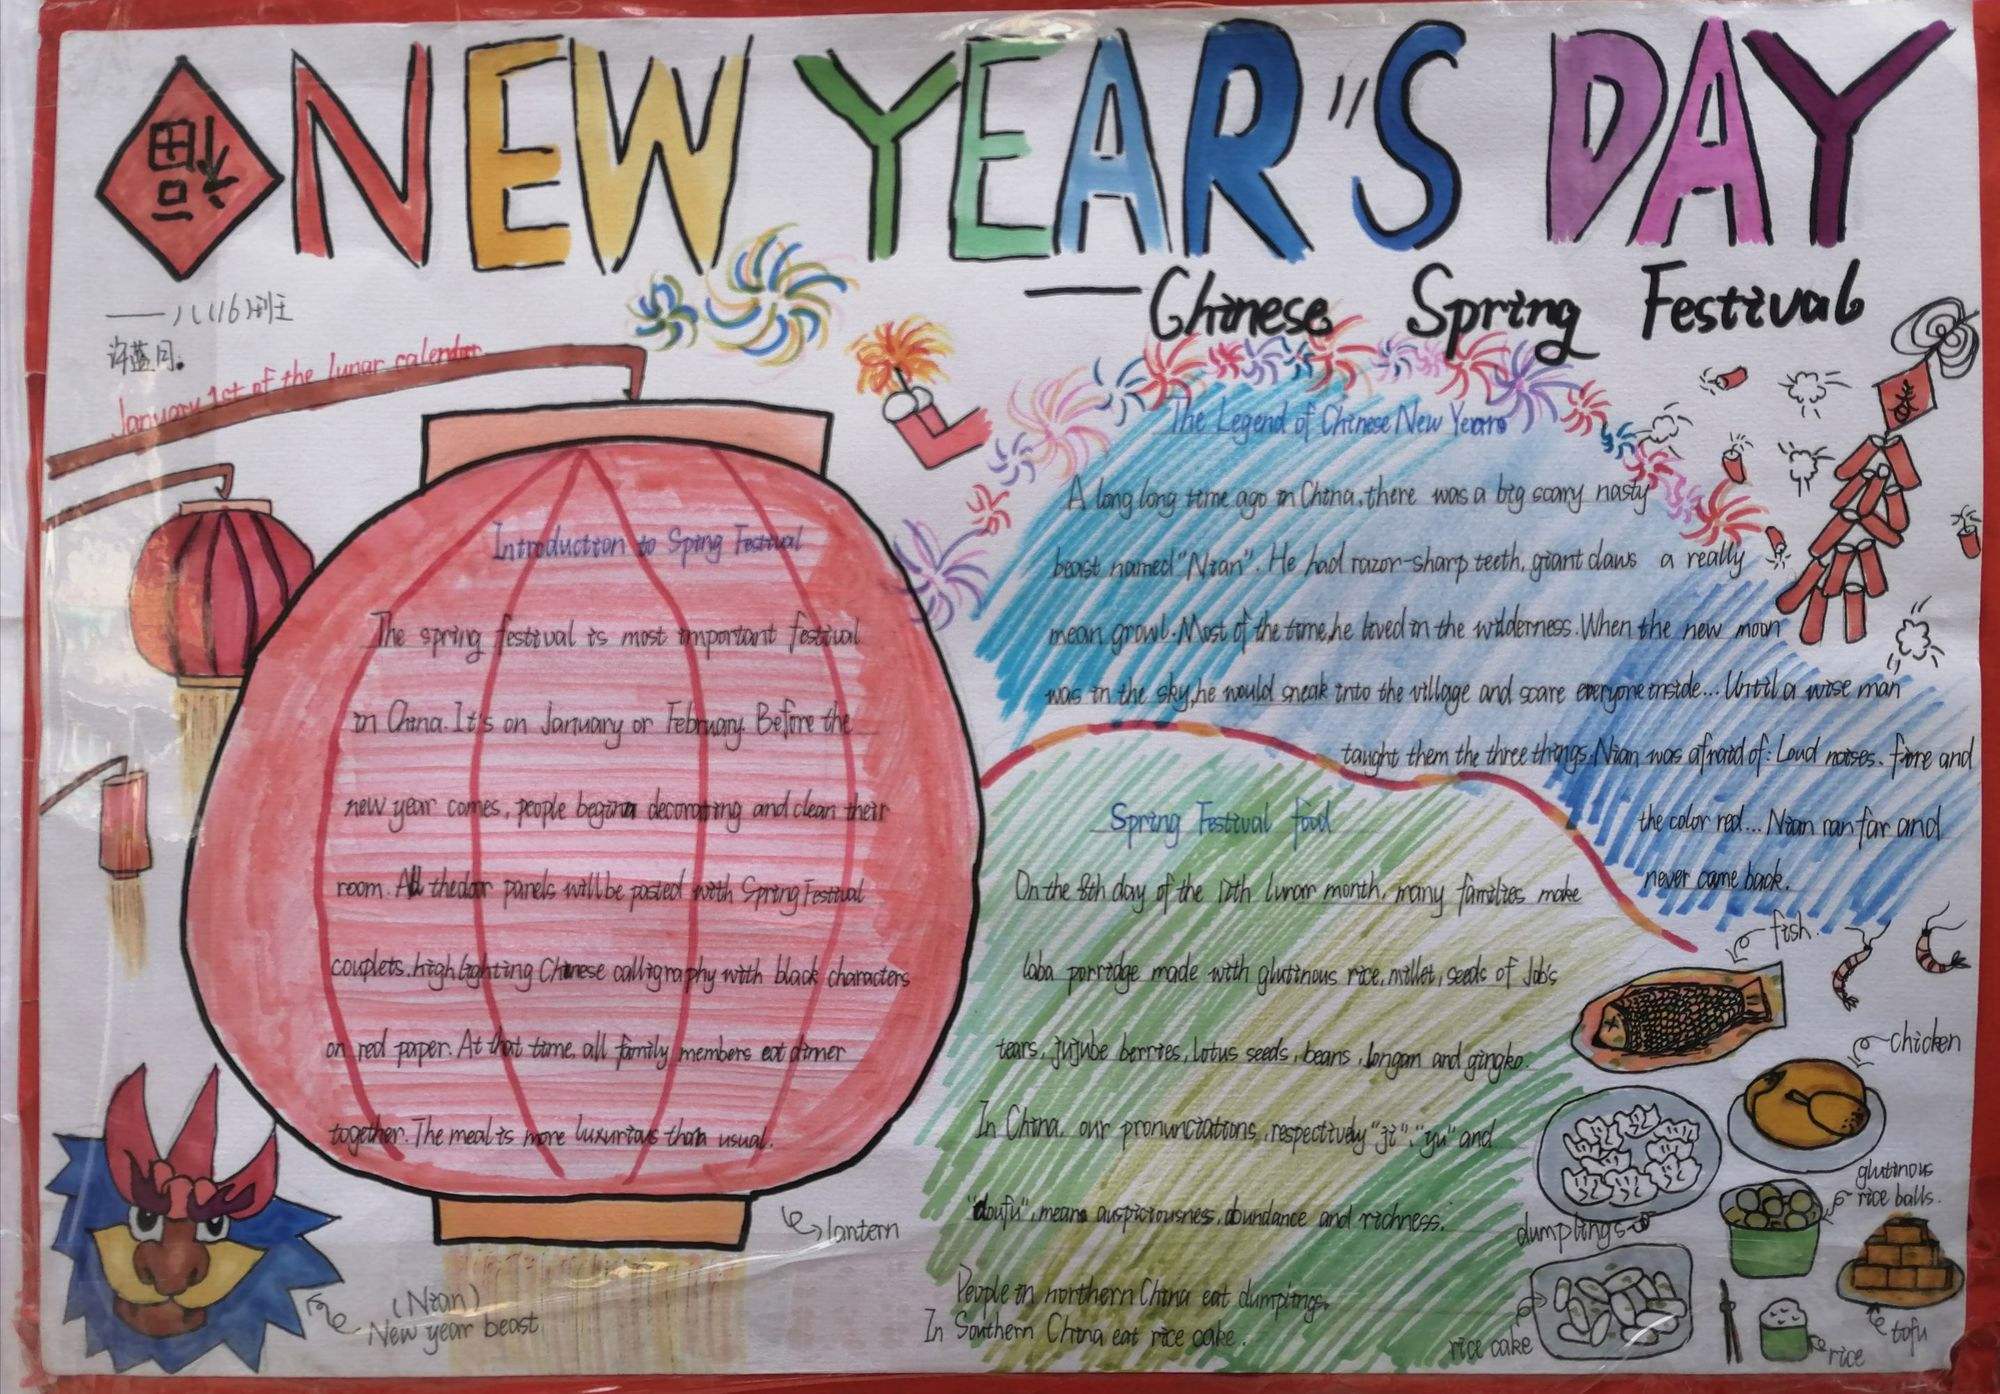 福
NEW YEAR'S DAY
— Chinese Spring Festival
—— 八(16)班
许蓝月.
January 1st of the lunar calendar
Introduction to Spring Festival
The spring festival is most important festival
in China. It's on January or February. Before the
new year comes, people begin decorating and clean their
room. All the door panels will be pasted with Spring Festival
couplets, highlighting Chinese calligraphy with black characters
on red paper. At that time, all family members eat dinner
together. The meal is more luxurious than usual.
lantern
(Nian)
New year beast
The Legend of Chinese New Years
A long long time ago in China, there was a big scary nasty
beast named "Nian". He had razor-sharp teeth, giant claws a really
mean growl. Most of the time, he lived in the wilderness. When the new moon
was in the sky, he would sneak into the village and scare everyone inside... Until a wise man
taught them the three things Nian was afraid of: Loud noises. fire and
the color red... Nian ran far and
never came back.
Spring Festival food
On the 8th day of the 12th lunar month, many families make
laba porridge made with glutinous rice, millet, seeds of Job's
tears, jujube berries, lotus seeds, beans, longan and gingko.
In China, our pronunciations, respectively "ji", "yu" and
"doufu", means auspiciousness, abundance and richness.
People in northern China eat dumplings.
In Southern China eat rice cake.
fish.
chicken
glutinous
rice balls.
dumplings
rice cake
rice
tofu